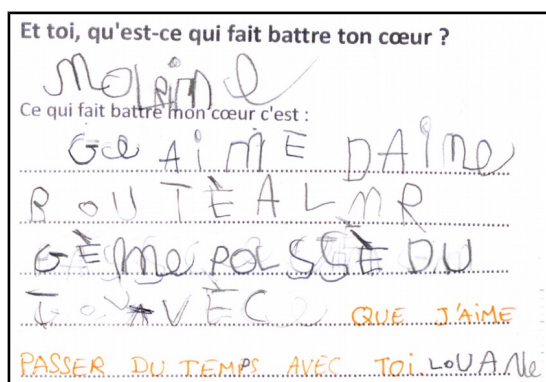 Et toi, qu'est-ce qui fait battre ton cœur ?
Ce qui fait battre mon cœur c'est :
Ge AiME DAine
BOUTÈALMR
GÈMe POLSSÈ DU
AVÈC QUE J'AiME
PASSER DU TEMPS AVEC TOi. LOUANe